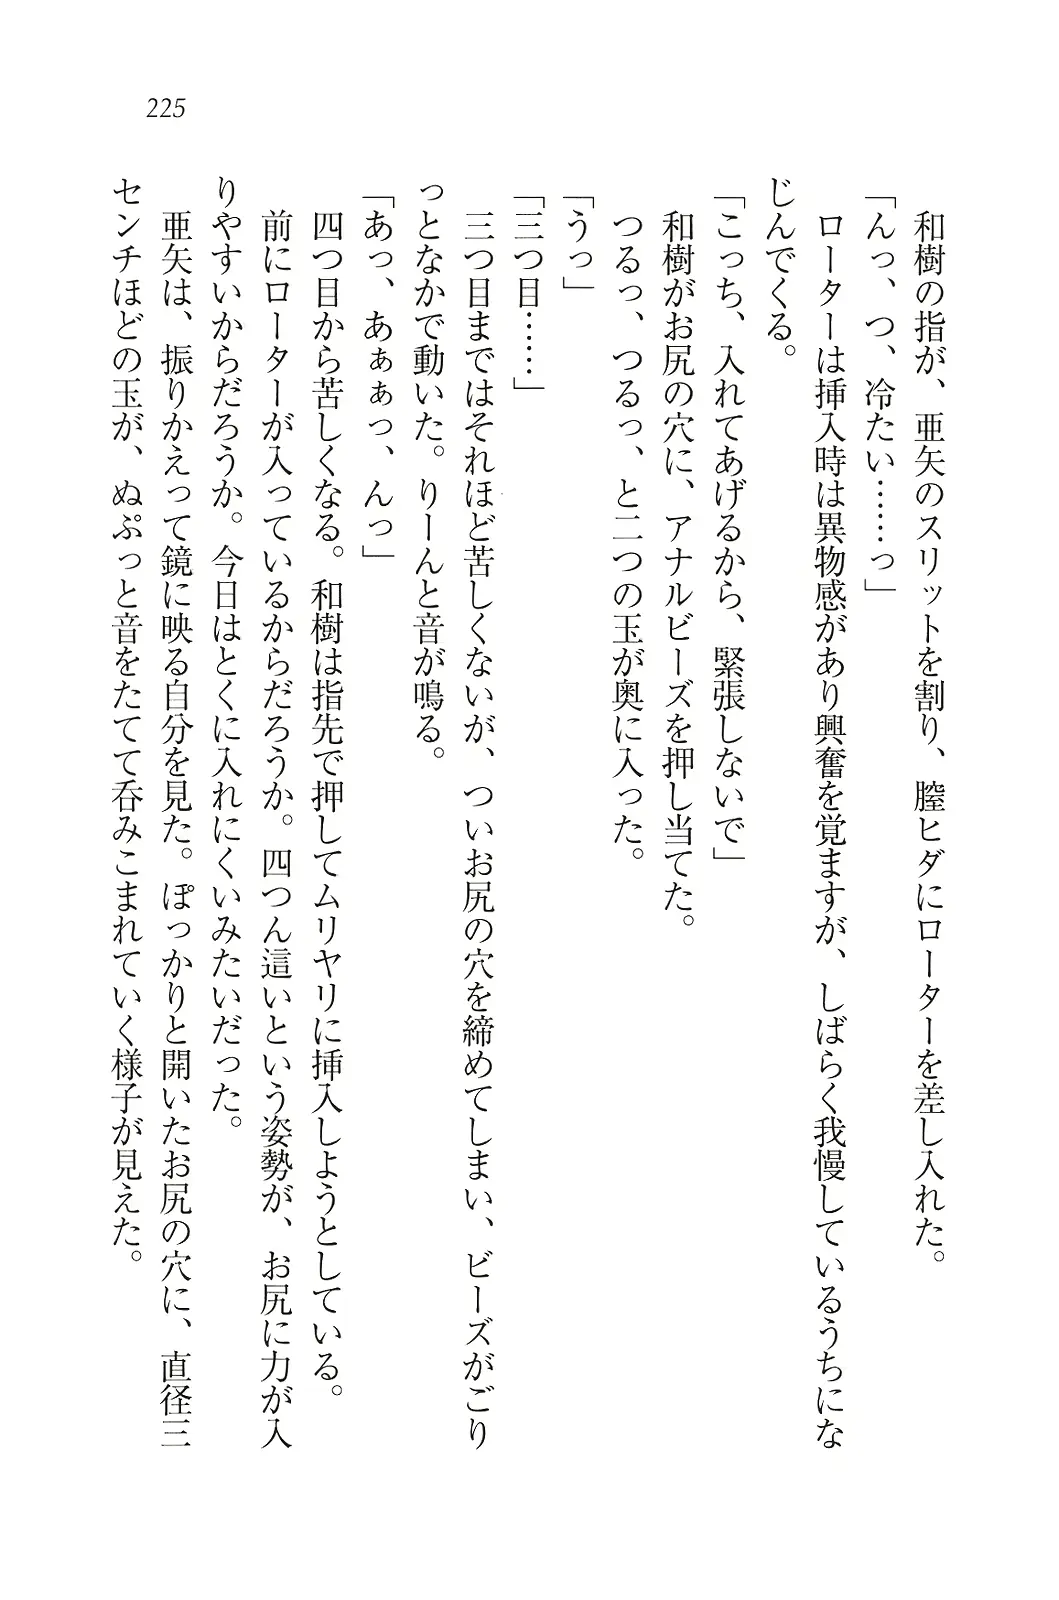 225
和樹の指が、亜矢のスリットを割り、膣ヒダにローターを差し入れた。
「んっ、つ、冷たい……っ」
ローターは挿入時は異物感があり興奮を覚ますが、しばらく我慢しているうちにな
じんでくる。
「こっち、入れてあげるから、緊張しないで」
和樹がお尻の穴に、アナルビーズを押し当てた。
つるっ、つるっ、と二つの玉が奥に入った。
「うっ」
「三つ目……」
三つ目まではそれほど苦しくないが、ついお尻の穴を締めてしまい、ビーズがごり
っとなかで動いた。りーんと音が鳴る。
「あっ、あぁぁっ、んっ」
四つ目から苦しくなる。和樹は指先で押してムリヤリに挿入しようとしている。
前にローターが入っているからだろうか。四つん這いという姿勢が、お尻に力が入
りやすいからだろうか。今日はとくに入れにくいみたいだった。
亜矢は、振りかえって鏡に映る自分を見た。ぽっかりと開いたお尻の穴に、直径三
センチほどの玉が、ぬぷっと音をたてて呑みこまれていく様子が見えた。